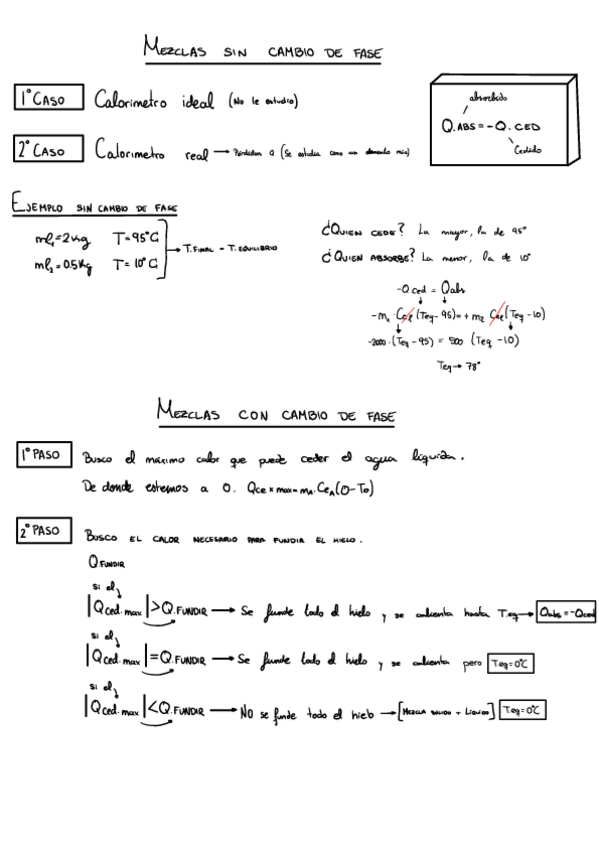 MEZCLAS SIN CAMBIO DE FASE
1º CASO Calorimetro ideal (No le estudio)
2º CASO Calorimetro real → Perdidas Q (Se estudia como un elemento más)
absorbido
Q.ABS = -Q.CED
Cedido
EJEMPLO SIN CAMBIO DE FASE
ml₁=2kg T=95ºC
ml₂=0.5kg T=10ºC
T.FINAL - T.EQUILIBRIO
¿QUIEN CEDE? La mayor, la de 95º
¿QUIEN ABSORBE? La menor, la de 10º
-Qced = Qabs
-m₁·Ce(Teq-95)=+m₂ Ce(Teq-10)
-2000·(Teq-95) = 500 (Teq-10)
Teq → 78º
MEZCLAS CON CAMBIO DE FASE
1º PASO Busco el máximo calor que puede ceder el agua líquida.
De donde estemos a 0. Qce x max=mA.CeA(0-To)
2º PASO BUSCO EL CALOR NECESARIO PARA FUNDIR EL HIELO.
Q.FUNDIR
si el
|Qced.max|>Q.FUNDIR → Se funde todo el hielo y se calienta hasta T.eq → Qabs=-Qced
si el
|Qced.max|=Q.FUNDIR → Se funde todo el hielo y se calienta pero T.eq=0ºC
si el
|Qced.max|<Q.FUNDIR → NO se funde todo el hielo → [MEZCLA SOLIDO + LIQUIDO] T.eq=0ºC